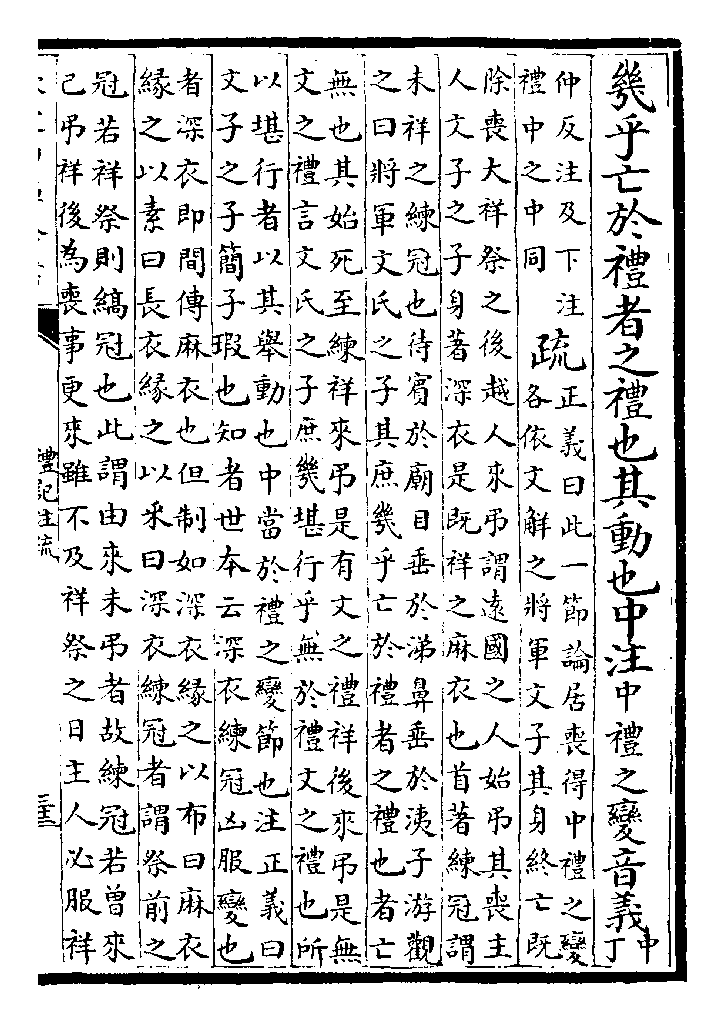 幾乎亡於禮者之禮也其動也中注中禮之變音義中丁
仲反注及下注
禮中之中同
疏
正義曰此一節論居喪得中禮之變
各依文解之將軍文子其身終亡既
除喪大祥祭之後越人來吊謂遠國之人始吊其喪主
人文子之子身著深衣是既祥之麻衣也首著練冠謂
未祥之練冠也待賓於廟目垂於涕鼻垂於洟子游觀
之曰將軍文氏之子其庶幾乎亡於禮者之禮也者亡
無也其始死至練祥來吊是有文之禮祥後來吊是無
文之禮言文氏之子庶幾堪行乎無於禮文之禮也所
以堪行者以其舉動也中當於禮之變節也注正義曰
文子之子簡子瑕也知者世本云深衣練冠凶服變也
者深衣即間傳麻衣也但制如深衣緣之以布曰麻衣
緣之以素曰長衣緣之以采曰深衣練冠者謂祭前之
冠若祥祭則縞冠也此謂由來未吊者故練冠若曾來
已吊祥後為喪事更來雖不及祥祭之日主人必服祥
禮記注疏